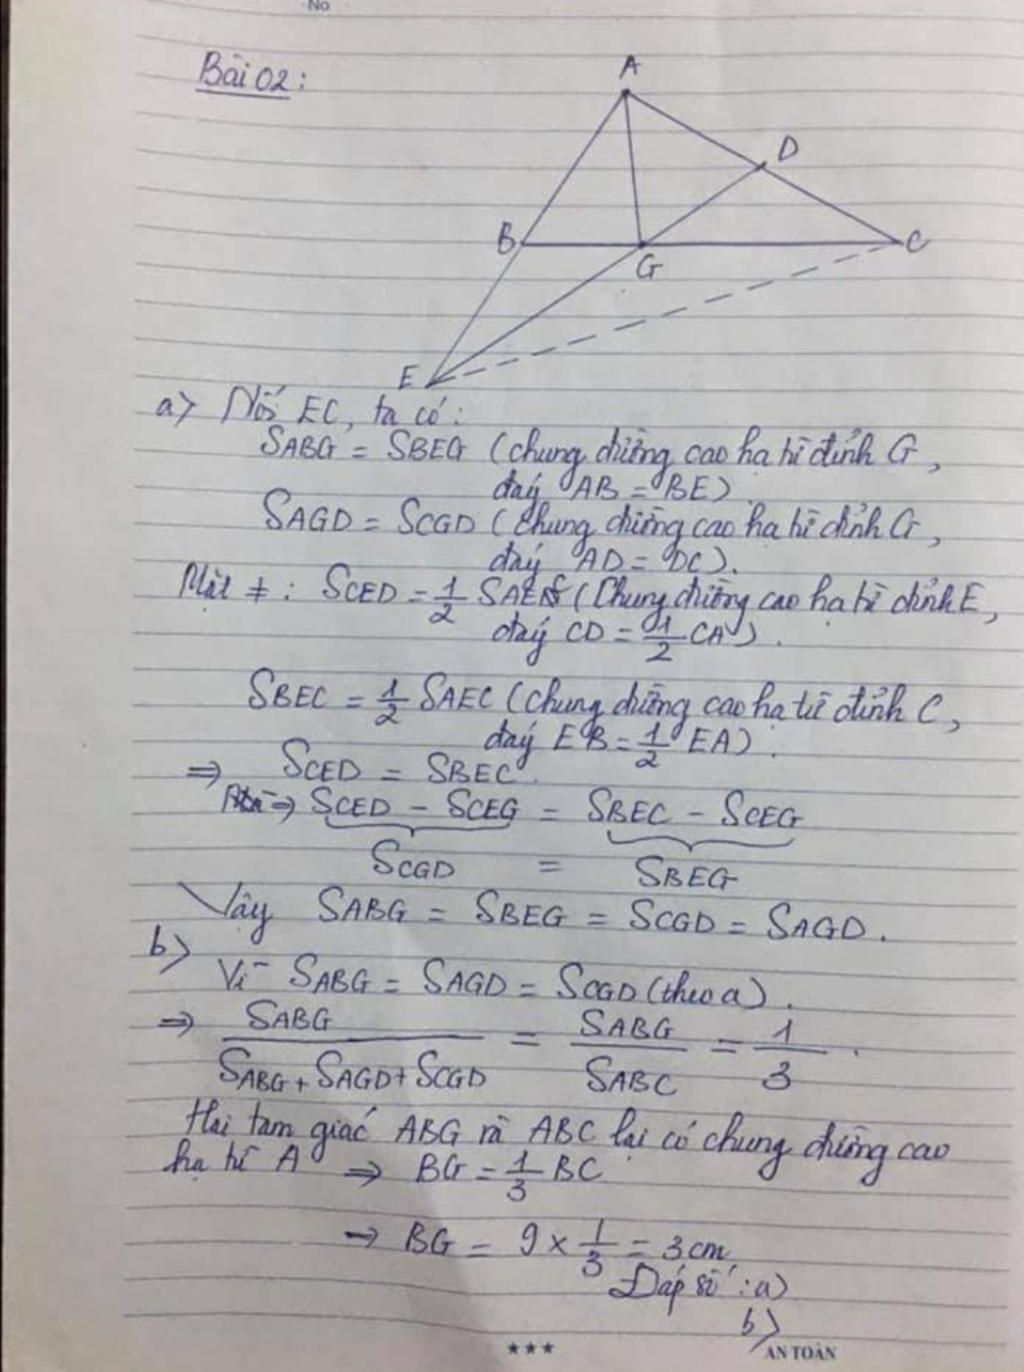 No
Bài 02:
A
D
B
G
C
E
a> Nối EC, ta có:
SABG = SBEG (chung đường cao hạ từ đỉnh G,
đáy AB = BE)
SAGD = SCGD (Chung đường cao hạ từ đỉnh G,
đáy AD = DC).
Mặt ≠ : SCED = 1/2 SAEC (Chung đường cao hạ từ đỉnh E,
đáy CD = 1/2 CA).
SBEC = 1/2 SAEC (Chung đường cao hạ từ đỉnh C,
đáy EB = 1/2 EA).
⇒ SCED = SBEC.
⇒ SCED - SCEG = SBEC - SCEG
SCGD = SBEG
Vậy SABG = SBEG = SCGD = SAGD.
b>
Vì SABG = SAGD = SCGD (theo a).
⇒ SABG / SABG + SAGD + SCGD = SABG / SABC = 1/3.
Hai tam giác ABG và ABC lại có chung đường cao
hạ từ A ⇒ BG = 1/3 BC
⇒ BG = 9 x 1/3 = 3cm
Đáp số: a>
b>
*** AN TOÀN